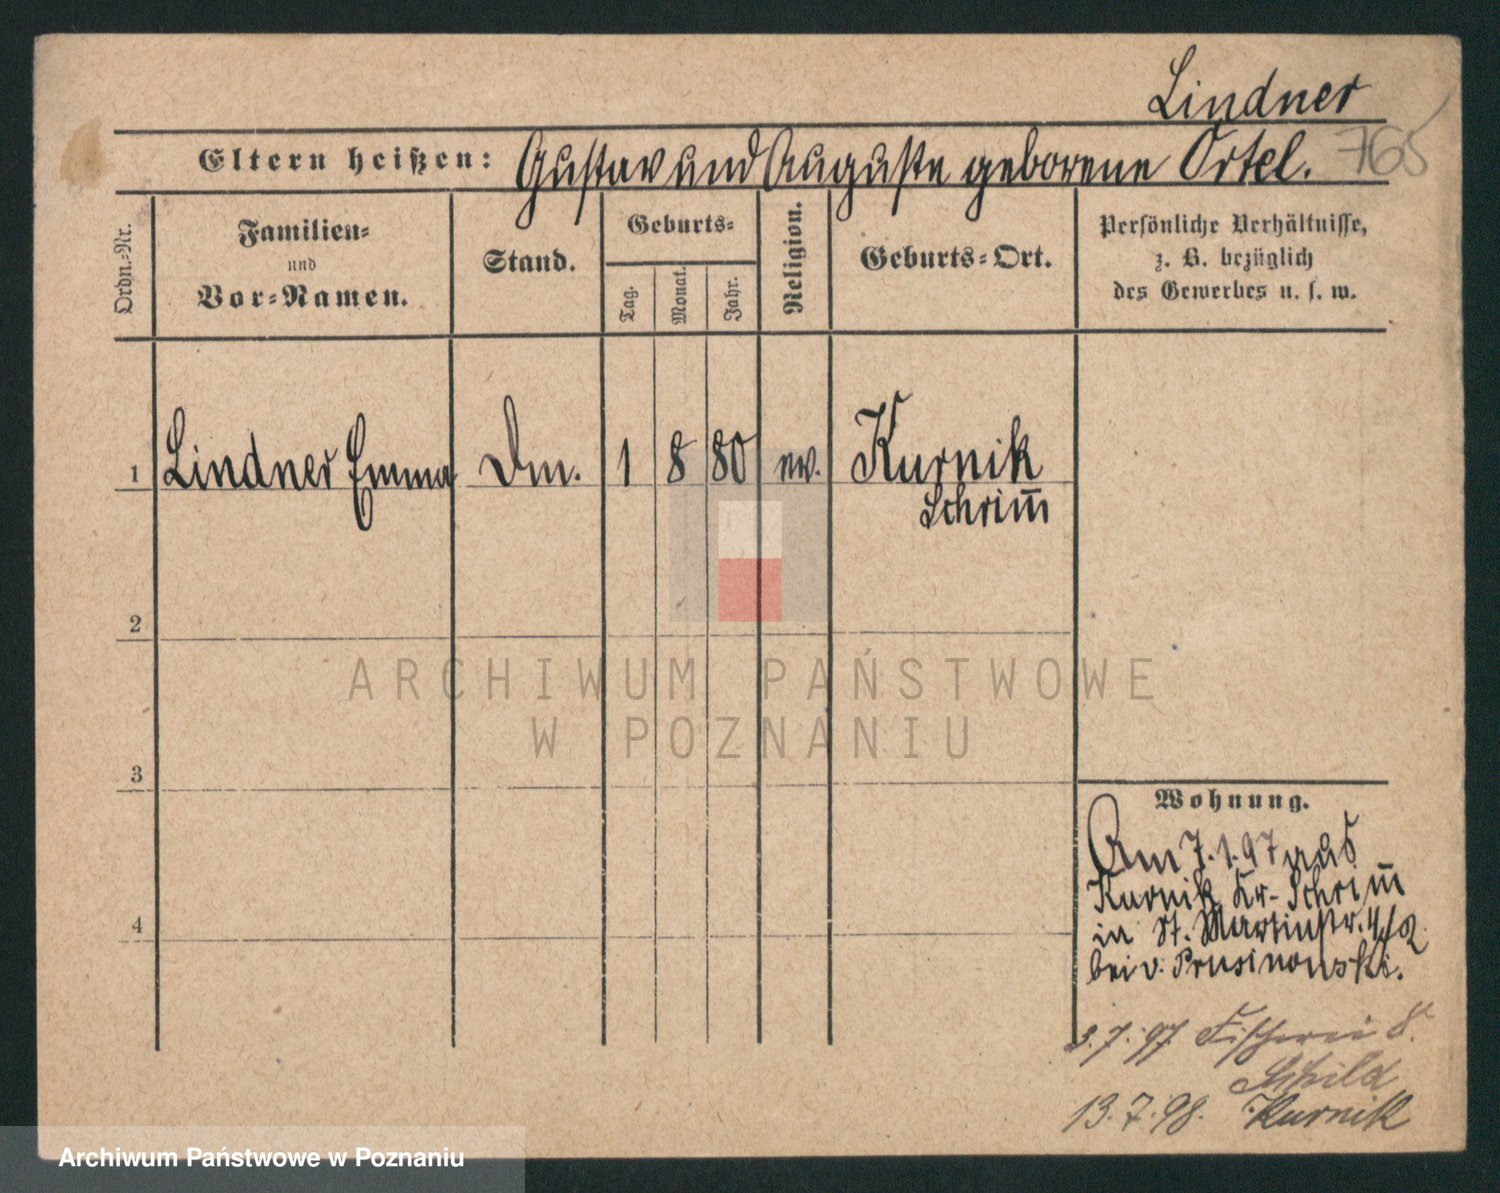 Lindner
Eltern heißen: Gustav und Auguste geborene Ortel. 765
Ordn.-Nr.
Familien-
und
Vor-Namen.
Stand.
Geburts-
Tag.
Monat.
Jahr.
Religion.
Geburts-Ort.
Persönliche Verhältnisse,
z. B. bezüglich
des Gewerbes u. s. w.
1 Lindner Emma Dm. 1 8 80 ev. Kurnik
Schrim̅
2
ARCHIWUM PAŃSTWOWE
W POZNANIU
3
Wohnung.
Am 7.1.97 aus
Kurnik Kr. Schrim̅
in St. Martinstr.
bei v. Prusinowski.
3.7.97 Fischerei 8.
Schild
13.7.98. Kurnik
4
Archiwum Państwowe w Poznaniu